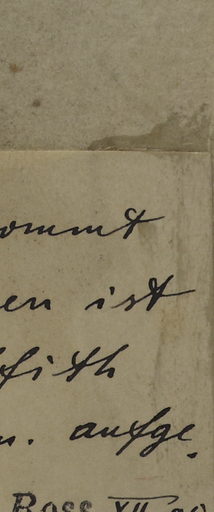 ommt
en ist
fith
n. aufge.
Ross XII